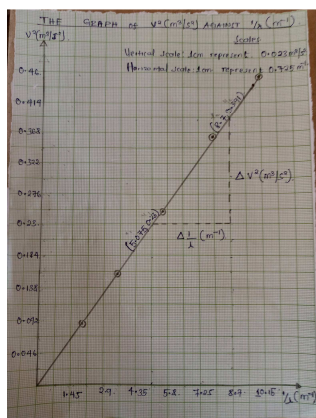 THE GRAPH OF V²(m²/s²) AGAINST 1/λ (m⁻¹)
Scales
Vertical scale: 1cm represent 0.023m²/s²
Horizontal scale: 1cm represent 0.725 m⁻¹
V²(m²/s²)
0.46
0.414
0.368
0.322
0.276
0.23
0.184
0.138
0.092
0.046
(5.075, 0.23)
ΔV²(m²/s²)
Δ1/λ (m⁻¹)
1.45 2.9 4.35 5.8 7.25 8.7 10.15 1/λ (m⁻¹)